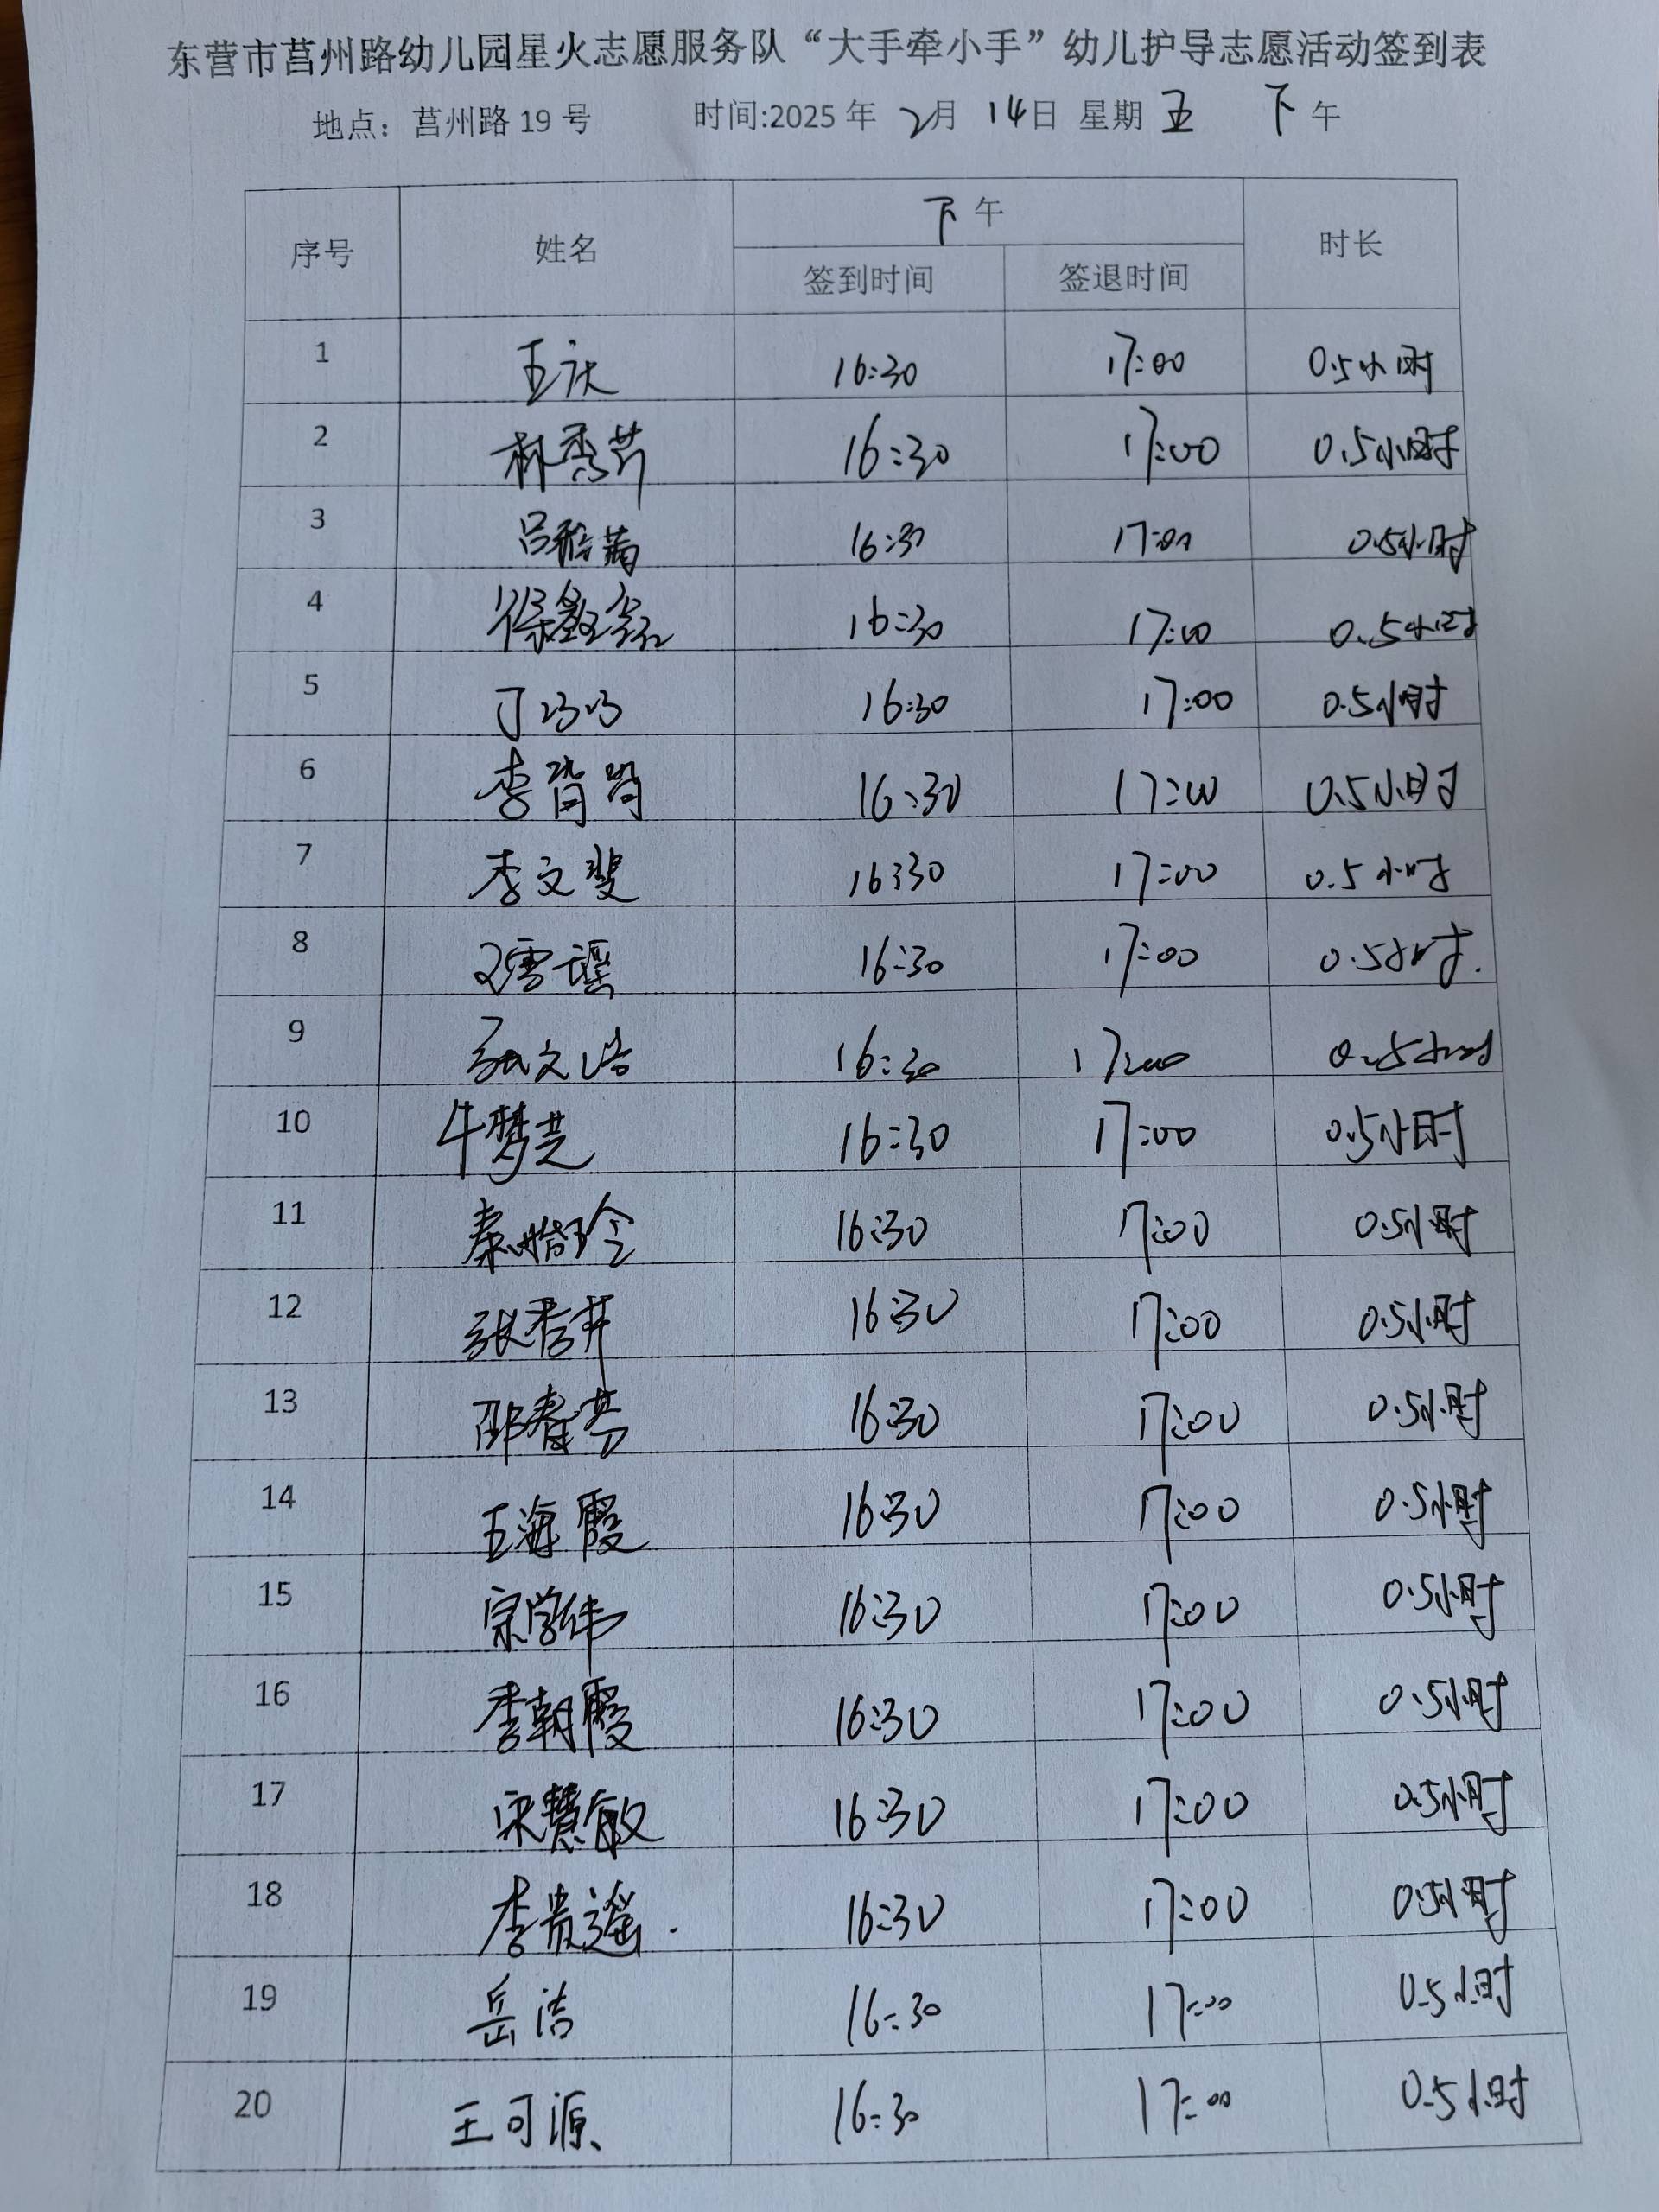 东营市莒州路幼儿园星火志愿服务队“大手牵小手”幼儿护导志愿活动签到表
地点：莒州路 19 号 时间:2025 年 2月 14日 星期 五 下 午
序号 姓名 下 午 时长
签到时间 签退时间
1 王庆 16:30 17:00 0.5小时
2 林秀芹 16:30 17:00 0.5小时
3 16:30 17:00 0.5小时
4 16:30 17:00 0.5小时
5 16:30 17:00 0.5小时
6 16:30 17:00 0.5小时
7 李文斐 16:30 17:00 0.5小时
8 16:30 17:00 0.5小时.
9 16:30 17:00 0.5小时
10 牛梦芸 16:30 17:00 0.5小时
11 16:30 17:00 0.5小时
12 16:30 17:00 0.5小时
13 邵春芳 16:30 17:00 0.5小时
14 王海霞 16:30 17:00 0.5小时
15 宗学伟 16:30 17:00 0.5小时
16 李朝霞 16:30 17:00 0.5小时
17 宋慧敏 16:30 17:00 0.5小时
18 李贵遥. 16:30 17:00 0.5小时
19 岳洁 16:30 17:00 0.5小时
20 王可源 16:30 17:00 0.5小时